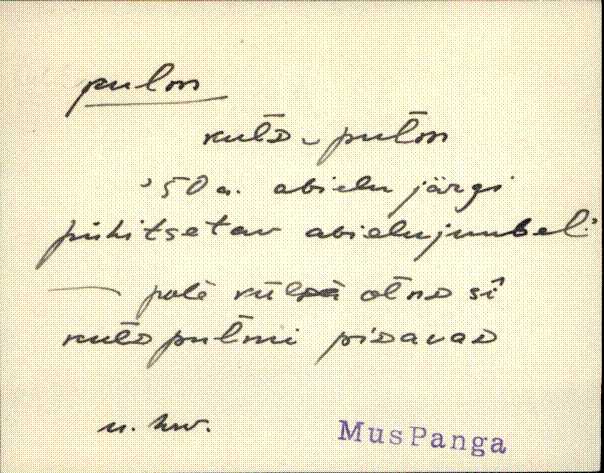 pulm
kuld-pulm
'50 a. abielu järgi
pühitsetav abielujuubel'
— pole külä olnd si
kuldpulmi pidavad
u. hw.
MusPanga